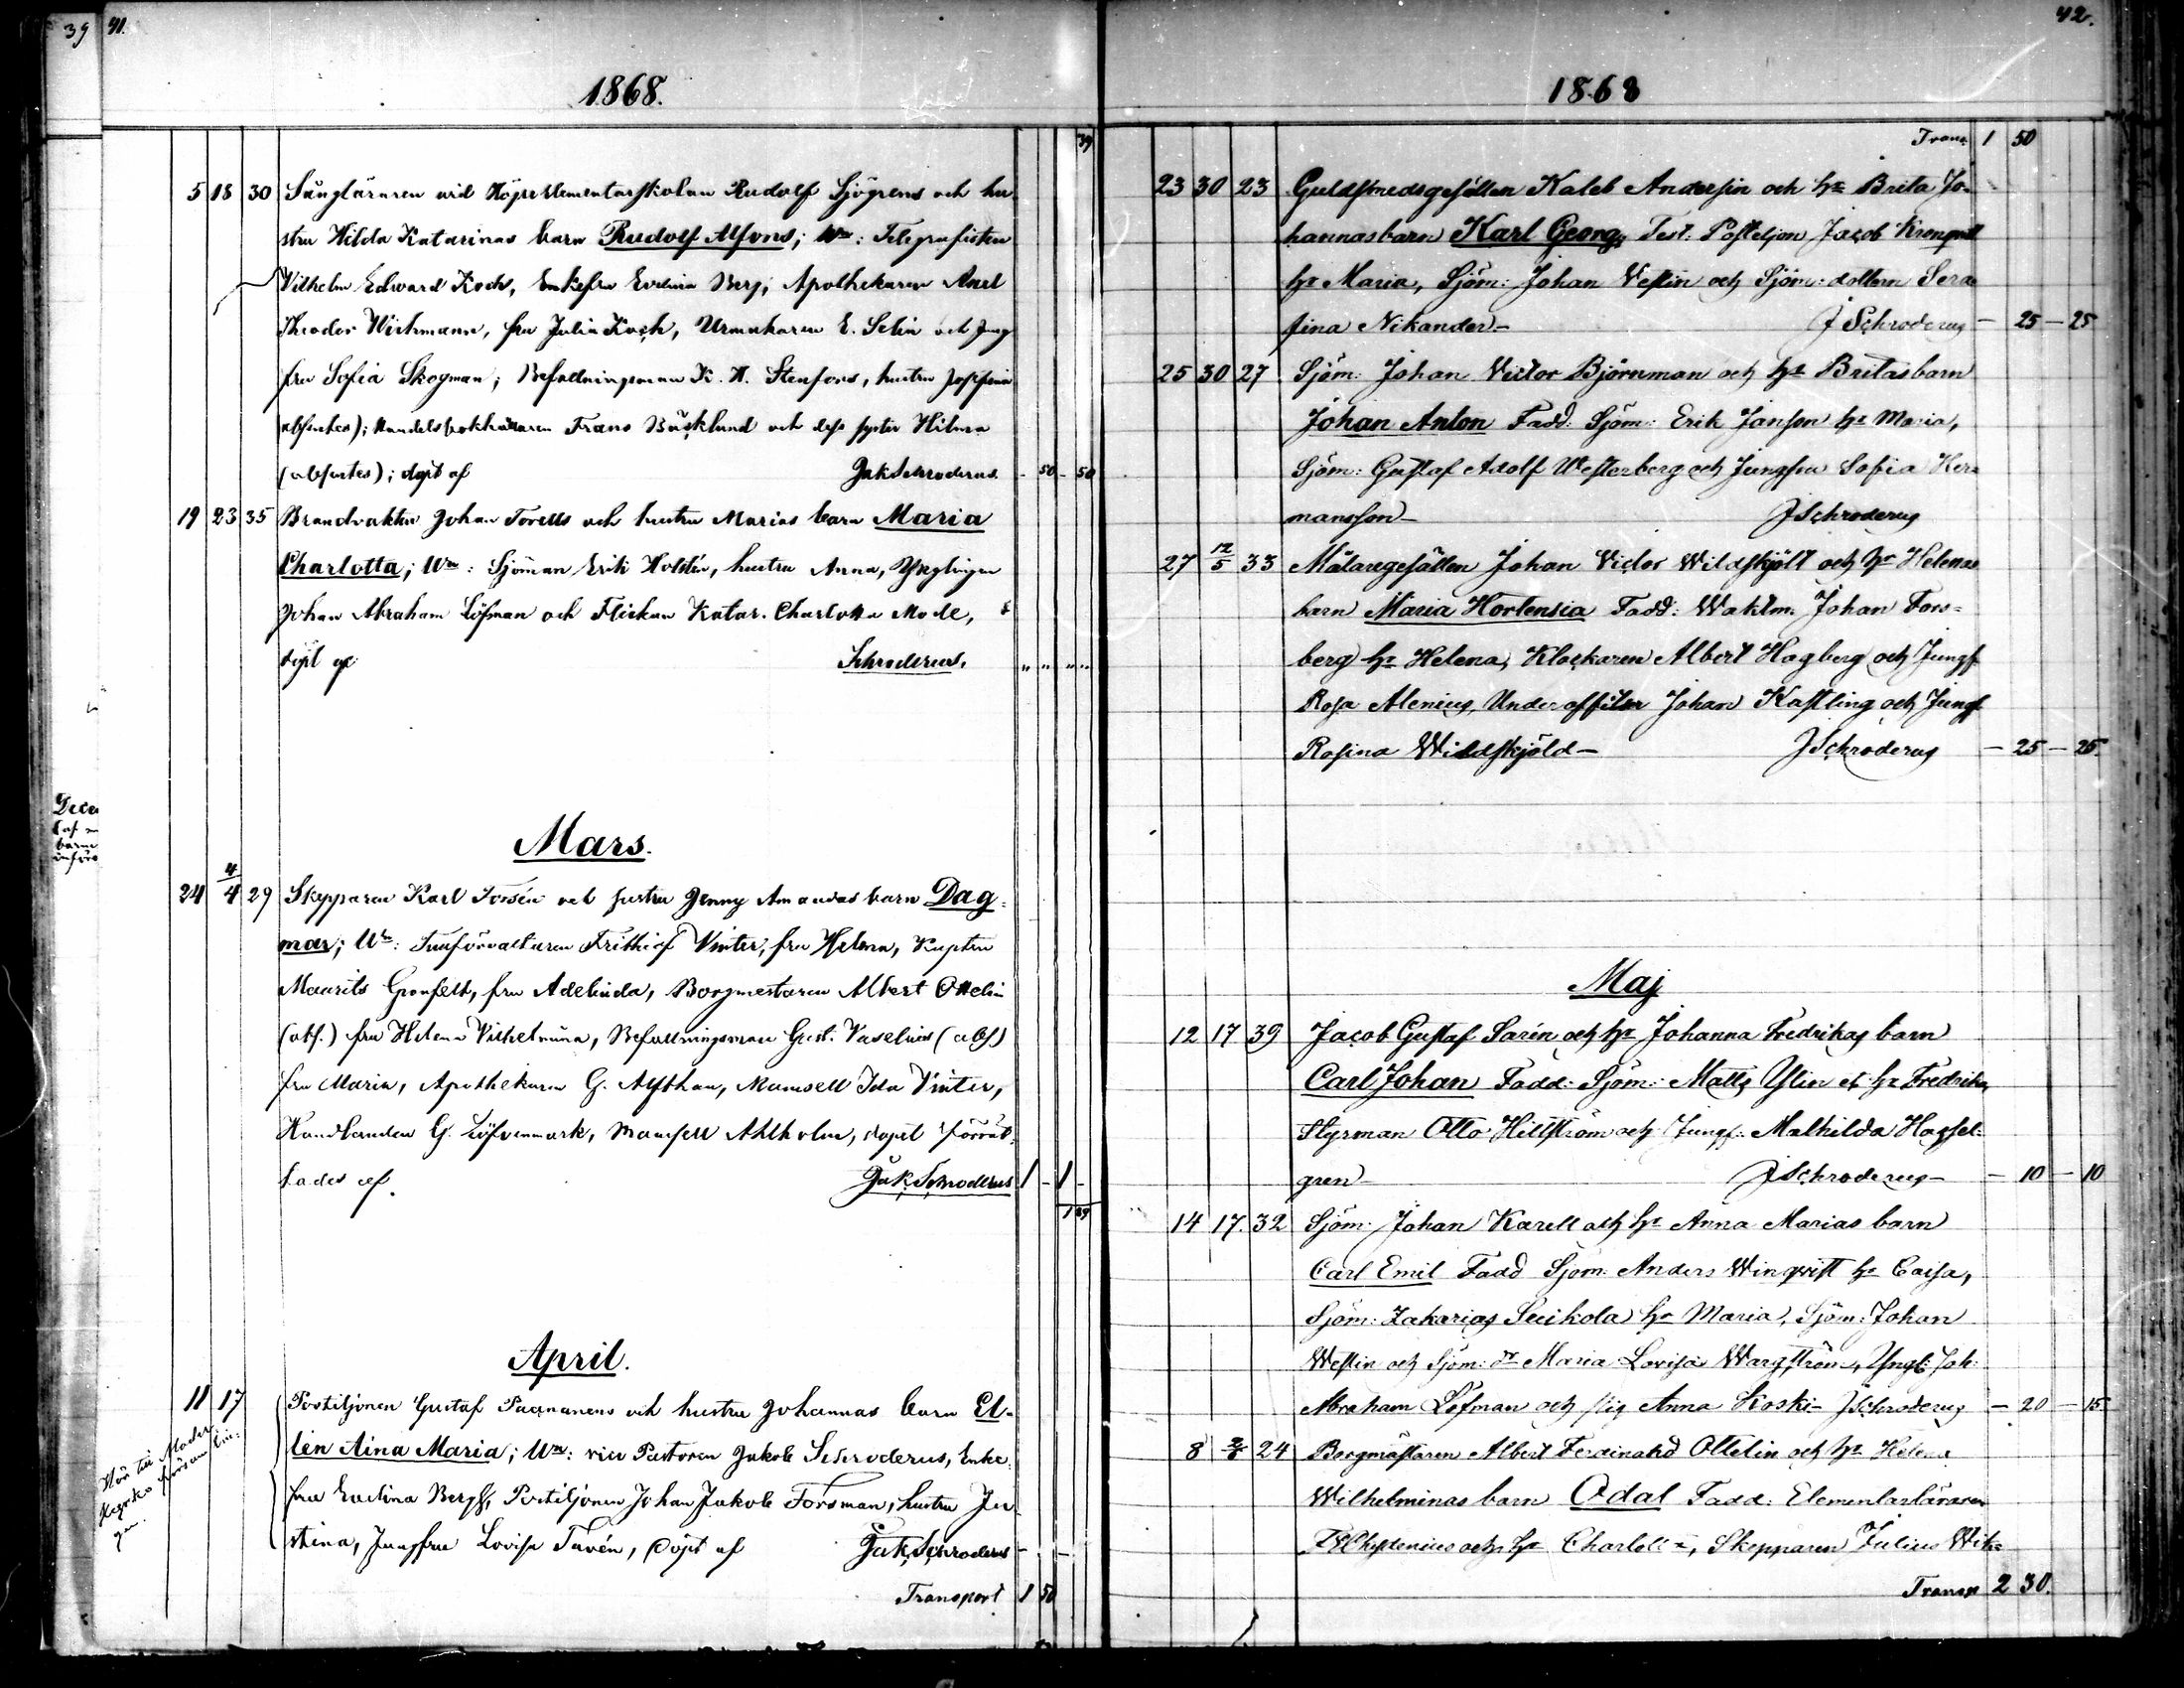 39 41.
1868.
39
5 18 30 Sångläraren vid Högre Elementarskolan Rudolf Sjögrens och hu
stru Hilda Katarinas barn Rudolf Alfons; Wn: Telegrafisten
Vilhelm Edward Koch, Enkefru Evelina Berg, Apothekaren Axel
Theodor Wichmann, fru Julia Koch, Urmakaren E. Selin och Jung
fru Sofia Skogman; Befallningsman K. A. Stenfors, hustru Josefina
absentes); Handelsbokhållaren Frans Bäcklund och dess syster Hilma
(absentes); döpt af Jak Schroderus. - 50 - 50
19 23 35 Brandvakten Johan Torells och hustru Marias barn Maria
Charlotta; Wn: Sjöman Erik Holstén, hustru Anna, Ynglingen
Johan Abraham Löfman och Flickan Katar. Charlotta Mode,
döpt af Schroderus.
Mars.
24 4/4 29 Skepparen Karl Forsén och hustru Jenny Amandas barn Dag-
mar; Wn: Tullförvaltaren Frithiof Vinter, fru Helena, Kapten
Maurits Gronfelt, fru Adelinda, Borgmestaren Albert Ottelin
(abs.) fru Helena Vilhelmina, Befallningsman Gust. Vaselius (abs)
fru Maria, Apothekaren G. Alfthan, Mamsell Ida Vinter,
Handlanden G. Löfvenmark, Mamsell Ahlholm, dopet förrät-
tades af Jak. Schroderus 1 - 1 -
1 89
April.
11 17 Postiljonen Gustaf Paananens och hustru Johannas barn El-
lén Aina Maria; Wn: vice Pastoren Jakob Schroderus, Enke-
fru Evelina Bergh, Postiljonen Johan Jakob Forsman, hustru Ju-
stina, Jungfru Lovisa Tavén, döpt af Jak. Schroderus - -
Hör till Moder
Kyrko församlin-
gen.
Transport 1 50
42.
1868
Trans. 1 50
23 30 23 Guldsmedsgesällen Kaleb Andersin och hu Brita Jo-
hannas barn Karl Georg, Test: Posteljon Jacob Kronqvist
hu Maria, Sjöm: Johan Vestin och Sjöm: dottern Sera-
fina Nikander- J Schroderus - 25 - 25
25 30 27 Sjöm: Johan Victor Björnman och hu Britas barn
Johan Anton Fadd: Sjöm: Erik Janson hu Maria,
Sjöm: Gustaf Adolf Westerberg och Jungfru Sofia Her-
mansson- J Schroderus
27 12/5 33 Målaregesällen Johan Victor Wildskjölt och hu Helenas
barn Maria Hortensia Fadd: Waktm: Johan Fors-
berg hu Helena, Klockaren Albert Hagberg och Jungf
Rosa Alenius, Underofficer Johan Kastling och Jungf
Rosina Wildskjöld- J Schroderus - 25 - 25.
Maj
12 17 39 Jacob Gustaf Sarin och hu Johanna Fredrikas barn
Carl Johan Fadd: Sjöm: Matts Ylin et hu Fredrika,
Styrman Otto Hellström och Jungf: Mathilda Hassel-
gren- J Schroderus- - 10 - 10
14 17. 32 Sjöm: Johan Karell och hu Anna Marias barn
Carl Emil Fadd Sjöm: Anders Winqvist hu Caisa,
Sjöm: Zakarias Suikola hu Maria, Sjöm: Johan
Westin och Sjöm: dr Maria Lovisa Wargström, Yngl: Joh:
Abraham Löfman och Anna Koski- J Schroderus - 20 - 15.
8 24 Borgmästaren Albert Ferdinand Ottelin och hu Helena
Wilhelminas barn Odal Fadd: Elementarläraren
Chydenius och hu Charlotta, Skepparen Julius Wik-
Transp 2 30.